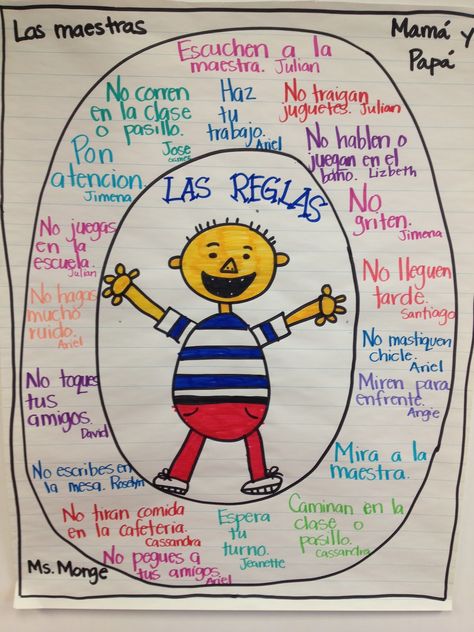 Los maestras
Mamá y
Papá
Escuchen a la
maestra. Julian
No corren
en la clase
o pasillo.
Jose
Haz
tu
trabajo.
Ariel
No traigan
juguetes. Julian
Pon
atencion.
Jimena
No hablen o
juegan en el
baño. Lizbeth
LAS REGLAS
No
griten.
Jimena
No juegas
en la
escuela.
Julian
No lleguen
tarde.
Santiago
No hagas
mucho
ruido.
Ariel
No mastiquen
chicle.
Ariel
Miren para
enfrente.
Angie
No toques
tus
amigos.
David
Mira a la
maestra.
No escribes en
la mesa. Roselyn
No tiran comida
en la cafeteria.
Cassandra
Espera
tu
turno.
Jeanette
Caminan en la
clase o
pasillo.
Cassandra
No pegues a
tus amigos.
Ariel
Ms. Monge